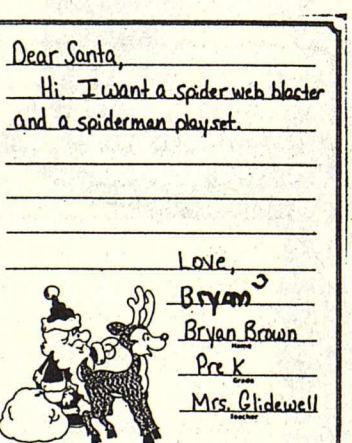 Dear Santa,
Hi. I want a spider web blaster
and a spiderman playset.
Love,
Bryan
Bryan Brown
Name
Pre K
Grade
Mrs. Glidewell
Teacher